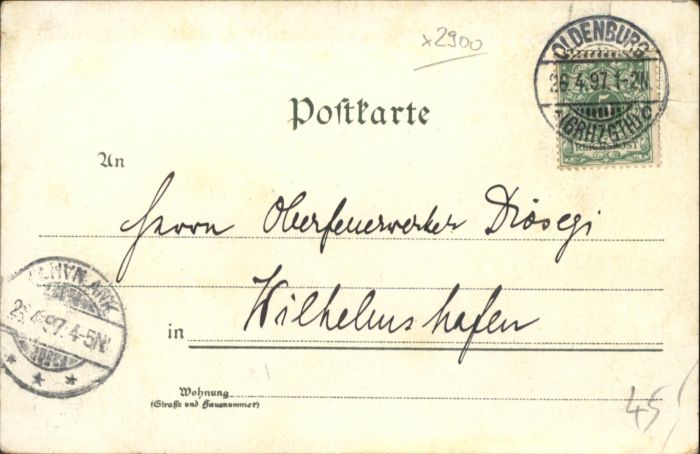 x2900
OLDENBURG
26.4.97.1-2N.
(GRHZGTH)
5
REICHSPOST
Postkarte
An
Herrn Oberfeuerwerker Diösegi
26.4.97.4-5N.
in Wilhelmshafen
Wohnung
(Straße und Hausnummer)
45